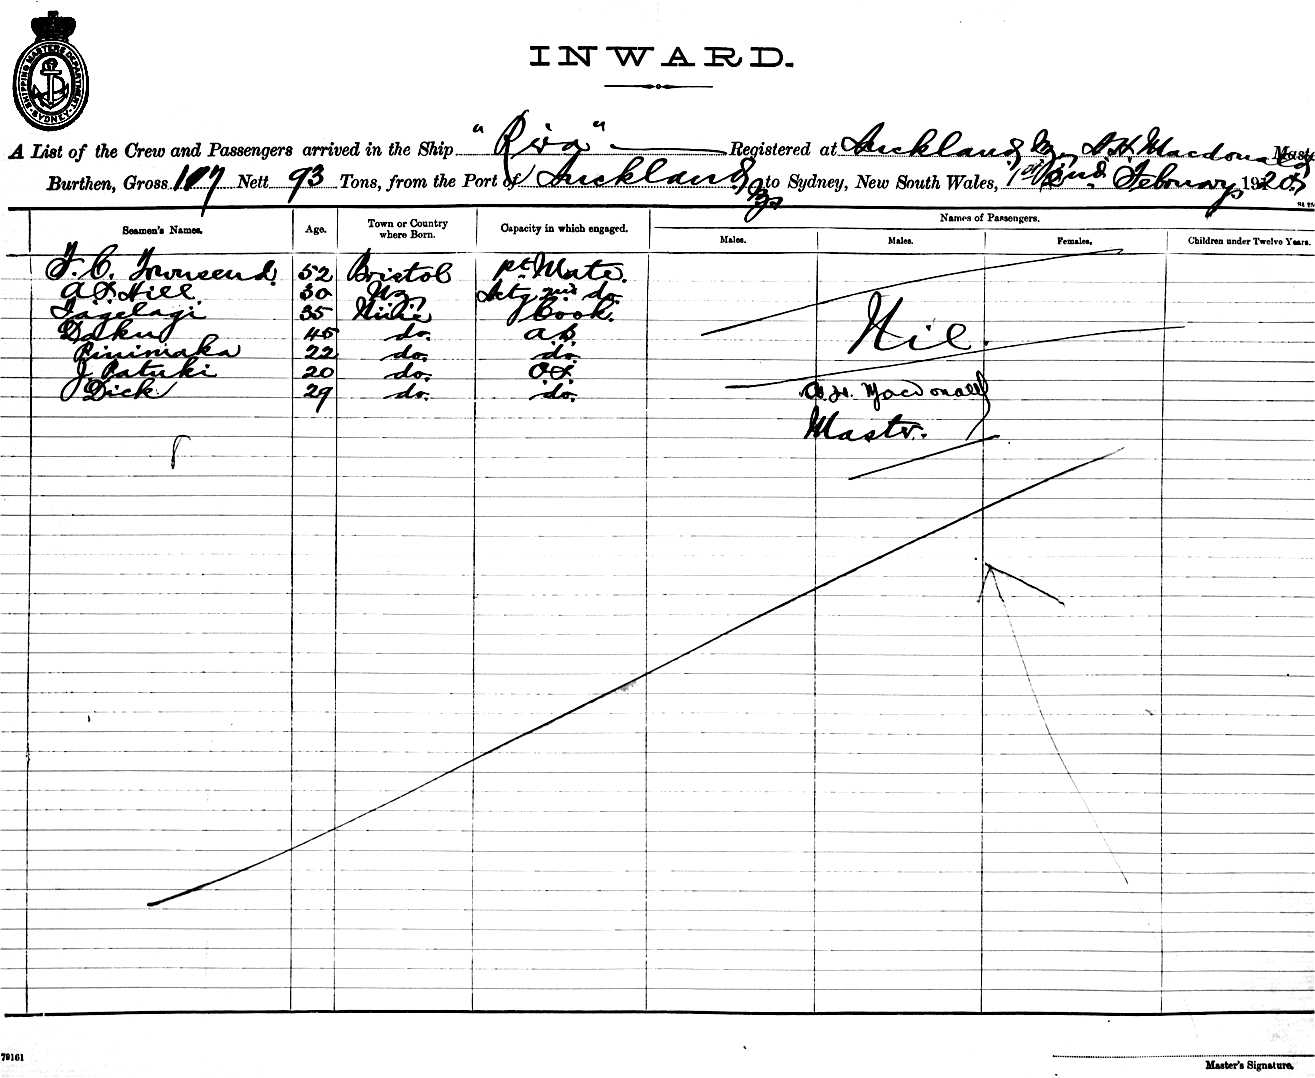 SHIPPING MASTERS DEPARTMENT SYDNEY
INWARD.
A List of the Crew and Passengers arrived in the Ship "Riva" Registered at Auckland Nz, A H Macdonald Master
Burthen, Gross 107 Nett 93 Tons, from the Port of Auckland Nz to Sydney, New South Wales, February 1920
Names of Passengers.
Seamen's Names. Age. Town or Country where Born. Capacity in which engaged. Males. Males. Females. Children under Twelve Years.
F. C. Townsend 52 Bristol Mate.
A. S. Hill. 30 Nz. Actg 2nd do.
Tagelagi 35 Niue Cook.
Daku 45 do. A.B
Pinimaka 22 do. do.
J. Patuki 20 do. O.S.
Dick 29 do. do.
Nil.
A. H. Macdonald
Master.
79161
Master's Signature.